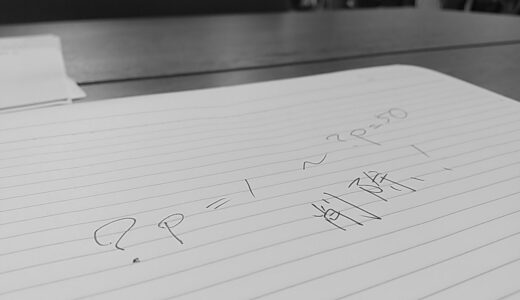 ?p=1 ~ ?p=50
削除!